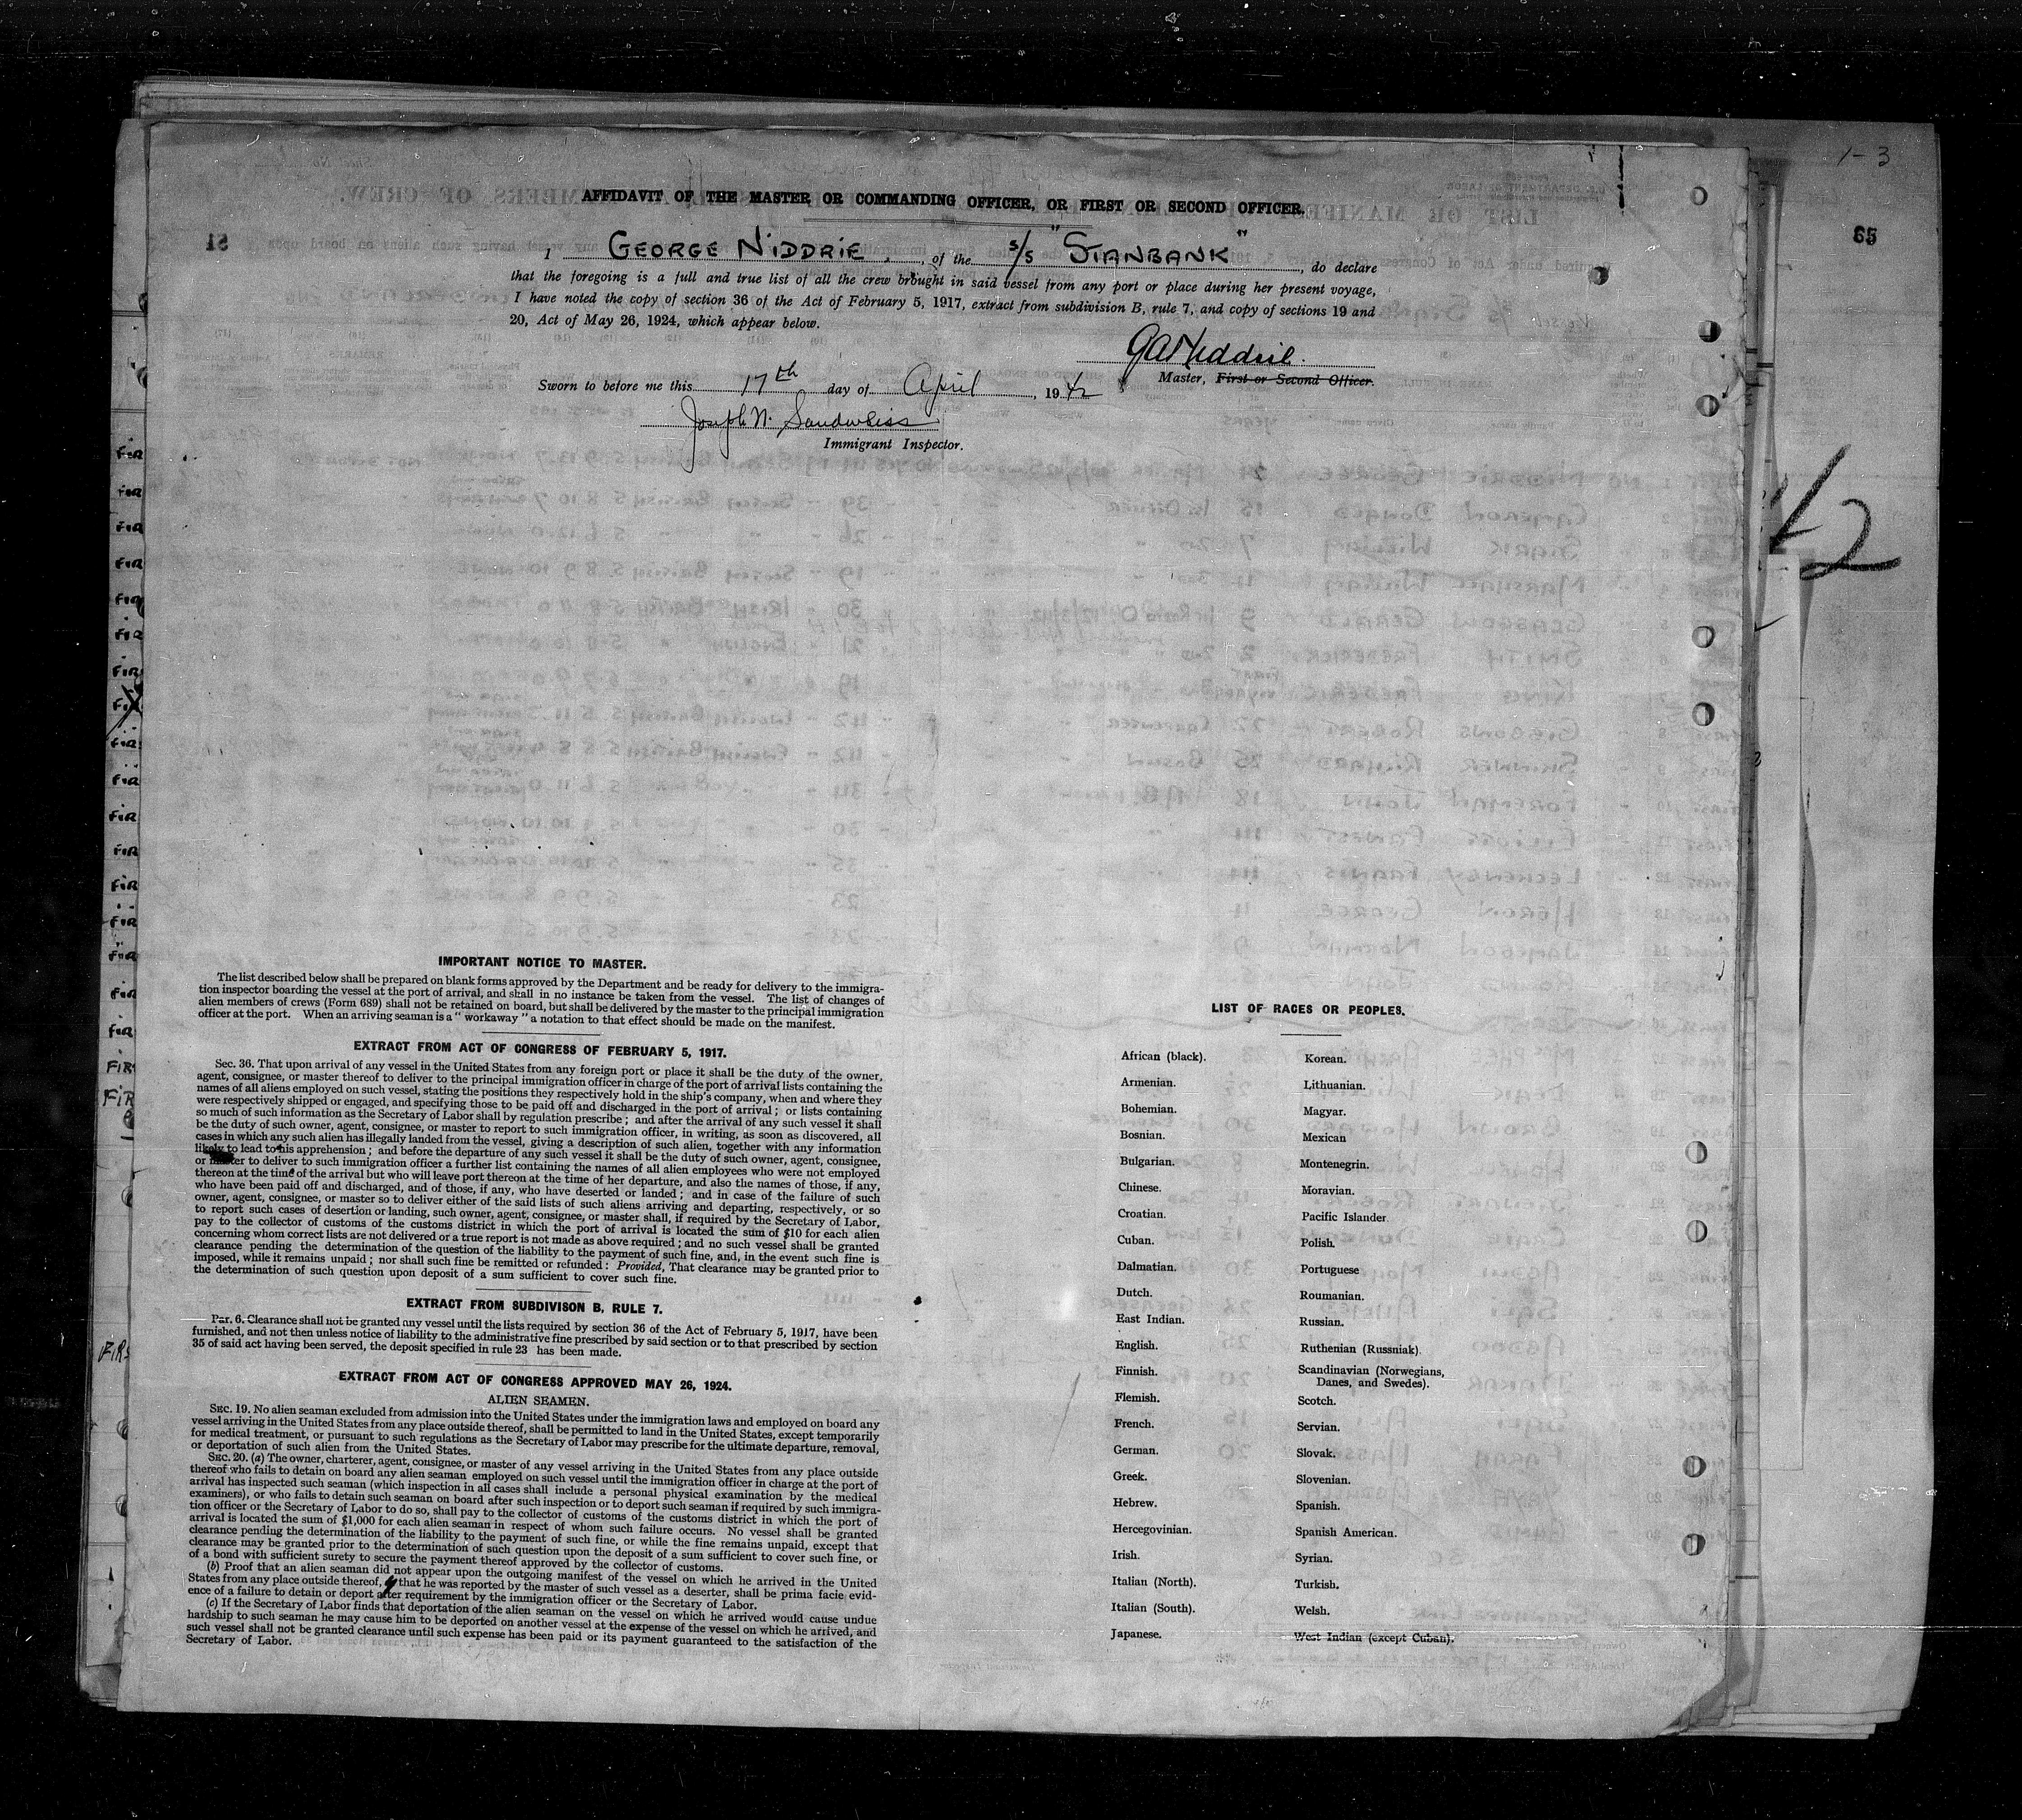 1-3
65
AFFIDAVIT OF THE MASTER OR COMMANDING OFFICER, OR FIRST OR SECOND OFFICER.
I GEORGE NIDDRIE, of the S/S "STANBANK", do declare
that the foregoing is a full and true list of all the crew brought in said vessel from any port or place during her present voyage,
I have noted the copy of section 36 of the Act of February 5, 1917, extract from subdivision B, rule 7, and copy of sections 19 and
20, Act of May 26, 1924, which appear below.
GANiddrie.
Master, First or Second Officer.
Sworn to before me this 17th day of April, 1942
Joseph N. Sandweiss
Immigrant Inspector.
42
IMPORTANT NOTICE TO MASTER.
The list described below shall be prepared on blank forms approved by the Department and be ready for delivery to the immigra-
tion inspector boarding the vessel at the port of arrival, and shall in no instance be taken from the vessel. The list of changes of
alien members of crews (Form 689) shall not be retained on board, but shall be delivered by the master to the principal immigration
officer at the port. When an arriving seaman is a "workaway" a notation to that effect should be made on the manifest.
EXTRACT FROM ACT OF CONGRESS OF FEBRUARY 5, 1917.
Sec. 36. That upon arrival of any vessel in the United States from any foreign port or place it shall be the duty of the owner,
agent, consignee, or master thereof to deliver to the principal immigration officer in charge of the port of arrival lists containing the
names of all aliens employed on such vessel, stating the positions they respectively hold in the ship's company, when and where they
were respectively shipped or engaged, and specifying those to be paid off and discharged in the port of arrival; or lists containing
so much of such information as the Secretary of Labor shall by regulation prescribe; and after the arrival of any such vessel it shall
be the duty of such owner, agent, consignee, or master to report to such immigration officer, in writing, as soon as discovered, all
cases in which any such alien has illegally landed from the vessel, giving a description of such alien, together with any information
likely to lead to his apprehension; and before the departure of any such vessel it shall be the duty of such owner, agent, consignee,
or master to deliver to such immigration officer a further list containing the names of all alien employees who were not employed
thereon at the time of the arrival but who will leave port thereon at the time of her departure, and also the names of those, if any,
who have been paid off and discharged, and of those, if any, who have deserted or landed; and in case of the failure of such
owner, agent, consignee, or master so to deliver either of the said lists of such aliens arriving and departing, respectively, or so
to report such cases of desertion or landing, such owner, agent, consignee, or master shall, if required by the Secretary of Labor,
pay to the collector of customs of the customs district in which the port of arrival is located the sum of $10 for each alien
concerning whom correct lists are not delivered or a true report is not made as above required; and no such vessel shall be granted
clearance pending the determination of the question of the liability to the payment of such fine, and, in the event such fine is
imposed, while it remains unpaid; nor shall such fine be remitted or refunded: Provided, That clearance may be granted prior to
the determination of such question upon deposit of a sum sufficient to cover such fine.
EXTRACT FROM SUBDIVISON B, RULE 7.
Par. 6. Clearance shall not be granted any vessel until the lists required by section 36 of the Act of February 5, 1917, have been
furnished, and not then unless notice of liability to the administrative fine prescribed by said section or to that prescribed by section
35 of said act having been served, the deposit specified in rule 23 has been made.
EXTRACT FROM ACT OF CONGRESS APPROVED MAY 26, 1924.
ALIEN SEAMEN.
SEC. 19. No alien seaman excluded from admission into the United States under the immigration laws and employed on board any
vessel arriving in the United States from any place outside thereof, shall be permitted to land in the United States, except temporarily
for medical treatment, or pursuant to such regulations as the Secretary of Labor may prescribe for the ultimate departure, removal,
or deportation of such alien from the United States.
SEC. 20. (a) The owner, charterer, agent, consignee, or master of any vessel arriving in the United States from any place outside
thereof who fails to detain on board any alien seaman employed on such vessel until the immigration officer in charge at the port of
arrival has inspected such seaman (which inspection in all cases shall include a personal physical examination by the medical
examiners), or who fails to detain such seaman on board after such inspection or to deport such seaman if required by such immigra-
tion officer or the Secretary of Labor to do so, shall pay to the collector of customs of the customs district in which the port of
arrival is located the sum of $1,000 for each alien seaman in respect of whom such failure occurs. No vessel shall be granted
clearance pending the determination of the liability to the payment of such fine, or while the fine remains unpaid, except that
clearance may be granted prior to the determination of such question upon the deposit of a sum sufficient to cover such fine, or
of a bond with sufficient surety to secure the payment thereof approved by the collector of customs.
(b) Proof that an alien seaman did not appear upon the outgoing manifest of the vessel on which he arrived in the United
States from any place outside thereof, that he was reported by the master of such vessel as a deserter, shall be prima facie evid-
ence of a failure to detain or deport after requirement by the immigration officer or the Secretary of Labor.
(c) If the Secretary of Labor finds that deportation of the alien seaman on the vessel on which he arrived would cause undue
hardship to such seaman he may cause him to be deported on another vessel at the expense of the vessel on which he arrived, and
such vessel shall not be granted clearance until such expense has been paid or its payment guaranteed to the satisfaction of the
Secretary of Labor.
LIST OF RACES OR PEOPLES.
African (black).
Armenian.
Bohemian.
Bosnian.
Bulgarian.
Chinese.
Croatian.
Cuban.
Dalmatian.
Dutch.
East Indian.
English.
Finnish.
Flemish.
French.
German.
Greek.
Hebrew.
Hercegovinian.
Irish.
Italian (North).
Italian (South).
Japanese.
Korean.
Lithuanian.
Magyar.
Mexican
Montenegrin.
Moravian.
Pacific Islander
Polish.
Portuguese
Roumanian.
Russian.
Ruthenian (Russniak).
Scandinavian (Norwegians,
Danes, and Swedes).
Scotch.
Servian.
Slovak.
Slovenian.
Spanish.
Spanish American.
Syrian.
Turkish.
Welsh.
West Indian (except Cuban).